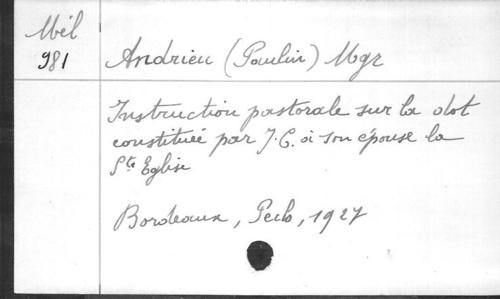 Mél
981
Andrieu (Paulin) Mgr
Instruction pastorale sur la dot
constituée par J.C. à son épouse la
Ste Eglise
Bordeaux, Pech, 1927